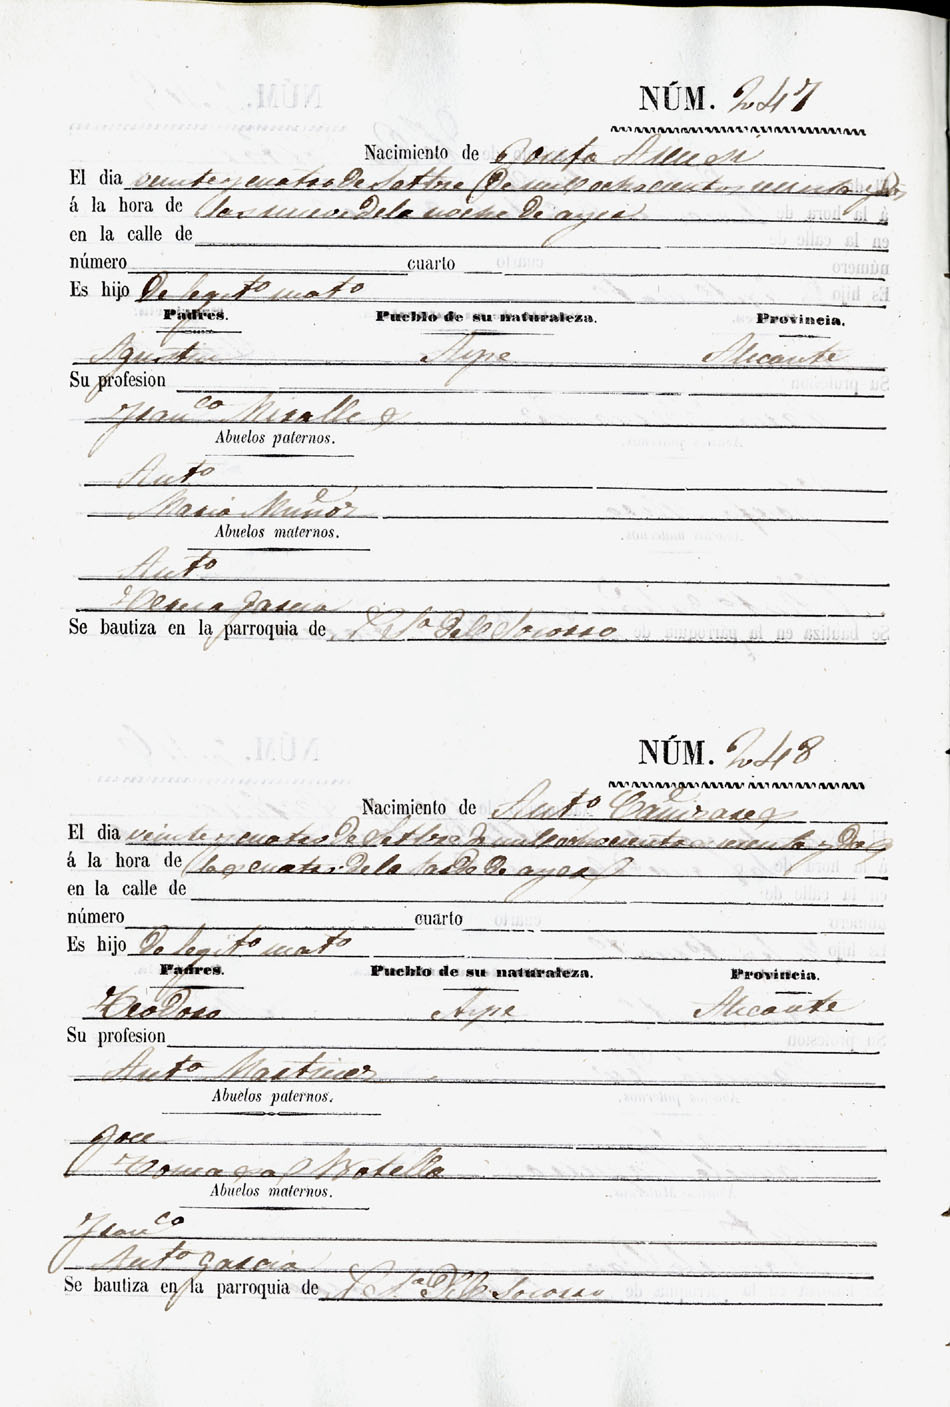 NÚM. 247
Nacimiento de
El dia veinte y cuatro de Setbre de mil ochocientos sesenta y dos
á la hora de las nueve de la noche de ayer
en la calle de
número cuarto
Es hijo de legito mato
Padres. Pueblo de su naturaleza. Provincia.
Agustin Aspe Alicante
Su profesion
Franco Miralles
Abuelos paternos.
Anto
Maria Muñoz
Abuelos maternos.
Anto
Teresa Garcia
Se bautiza en la parroquia de N. Sa del Socorro
NÚM. 248
Nacimiento de Anto Cañizares
El dia veinte y cuatro de Setbre de mil ochocientos sesenta y dos
á la hora de las cuatro de la tarde de ayer
en la calle de
número cuarto
Es hijo de legito mato
Padres. Pueblo de su naturaleza. Provincia.
Teodoro Aspe Alicante
Su profesion
Anta Martinez
Abuelos paternos.
Jose
Tomasa Botella
Abuelos maternos.
Franco
Anta Garcia
Se bautiza en la parroquia de N. Sa del Socorro